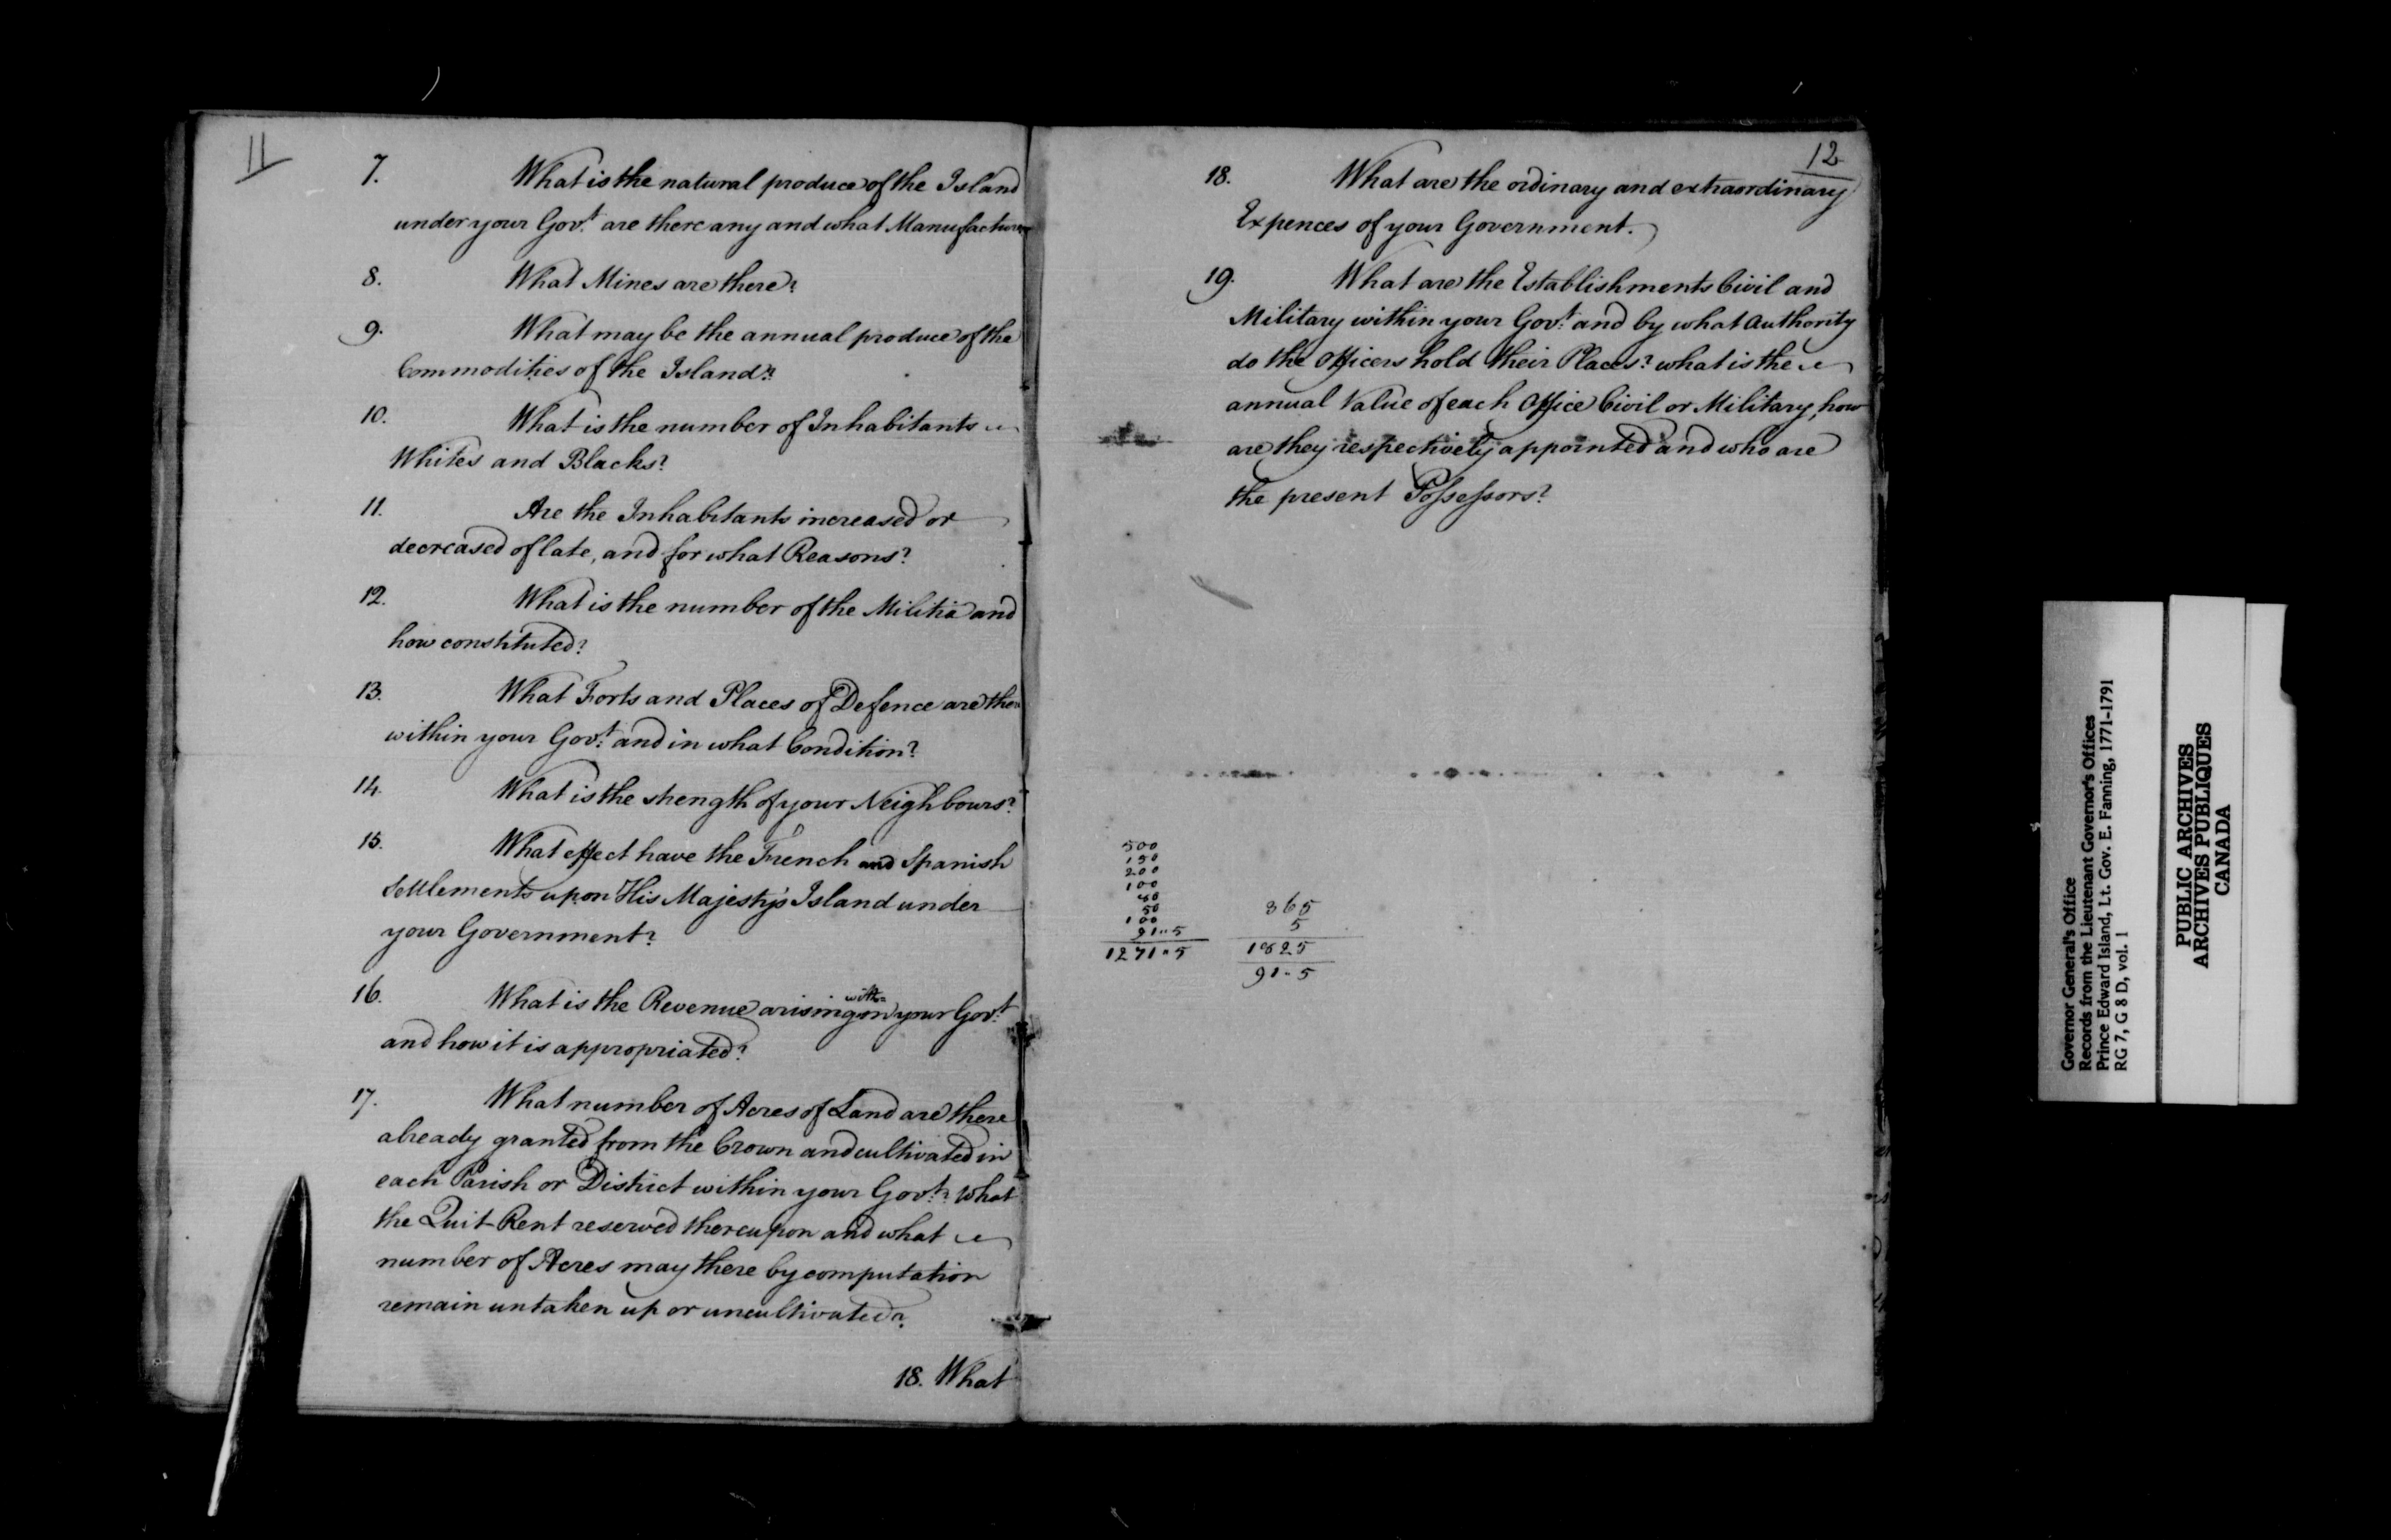 11
7. What is the natural produce of the Island
under your Govt. are there any and what Manufactures
8. What Mines are there?
9. What may be the annual produce of the
Commodities of the Island?
10. What is the number of Inhabitants
Whites and Blacks?
11. Are the Inhabitants increased or
decreased of late, and for what Reasons?
12. What is the number of the Militia and
how constituted?
13. What Forts and Places of Defence are there
within your Govt. and in what Condition?
14. What is the strength of your Neighbours?
15. What effect have the French and Spanish
Settlements upon His Majesty's Island under
your Government?
16. What is the Revenue arising within your Govt.
and how it is appropriated?
17. What number of Acres of Land are there
already granted from the Crown and cultivated in
each Parish or District within your Govt.? What
the Quit Rent reserved thereupon and what
number of Acres may there by computation
remain untaken up or uncultivated?
18. What
12
18. What are the ordinary and extraordinary
Expences of your Government.
19. What are the Establishments Civil and
Military within your Govt. and by what Authority
do the Officers hold their Places? what is the
annual Value of each Office Civil or Military, how
are they respectively appointed and who are
the present Possessors?
500
150
200
100
80
50
100
91..5
1271..5
365
5
1825
91..5
Governor General's Office
Records from the Lieutenant Governor's Offices
Prince Edward Island, Lt. Gov. E. Fanning, 1771-1791
RG 7, G 8 D, vol. 1
PUBLIC ARCHIVES
ARCHIVES PUBLIQUES
CANADA